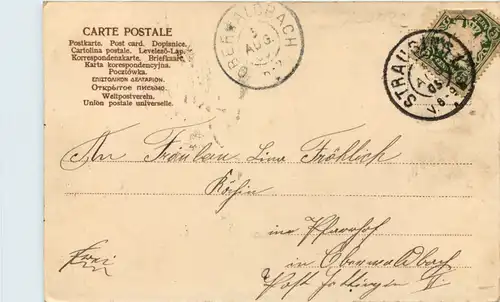 CARTE POSTALE
Postkarte. Post card. Dopisnice.
Cartolina postale. Levelező-Lap.
Korrespondenzkarte. Briefkaart.
Karta korespondencyjna.
Pocztówka.
ΕΠΙΣΤΟΛΙΚΟΝ ΔΕΛΤΑΡΙΟΝ.
Открытое письмо.
Weltpostverein.
Union postale universelle.
OBERWALDBACH
5
AUG
STRAUBING
An Fräulein Lina Fröhlich
Köchin
im Pfarrhof
in Oberwaldbach
Post Jettingen